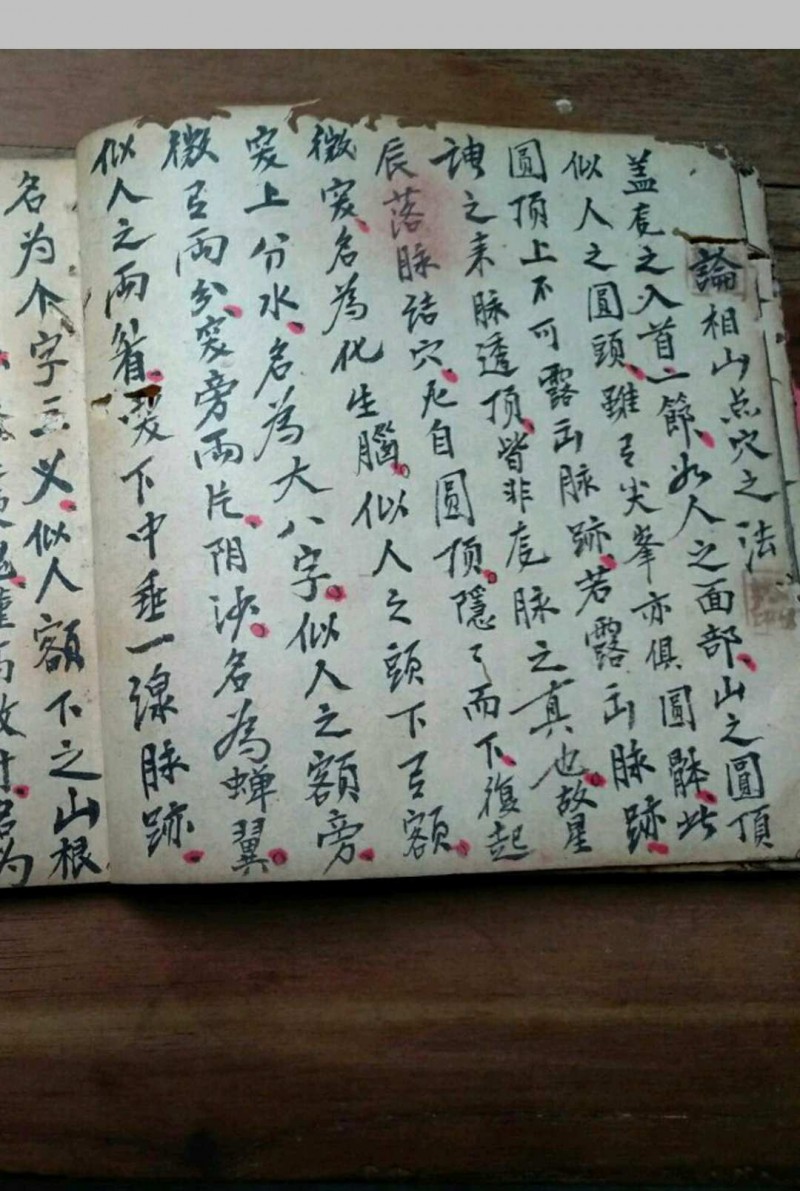 論相山点穴之法
盖竜之入首一節如人之面部山之圓頂
似人之圓頭雖有尖峯亦俱圓骵此
圓頂上不可露出脉跡若露出脉跡
謂之来脉透頂皆非竜脉之真也故星
辰落脉结穴凡自圓頂隱々而下復起
微窔名為化生腦似人之頭下有額
窔上分水名為大八字似人之額旁
微有兩分窔旁兩片阴沙名為蝉翼
似人之兩眉窔下中垂一線脉跡
名为个字三义似人額下之山根